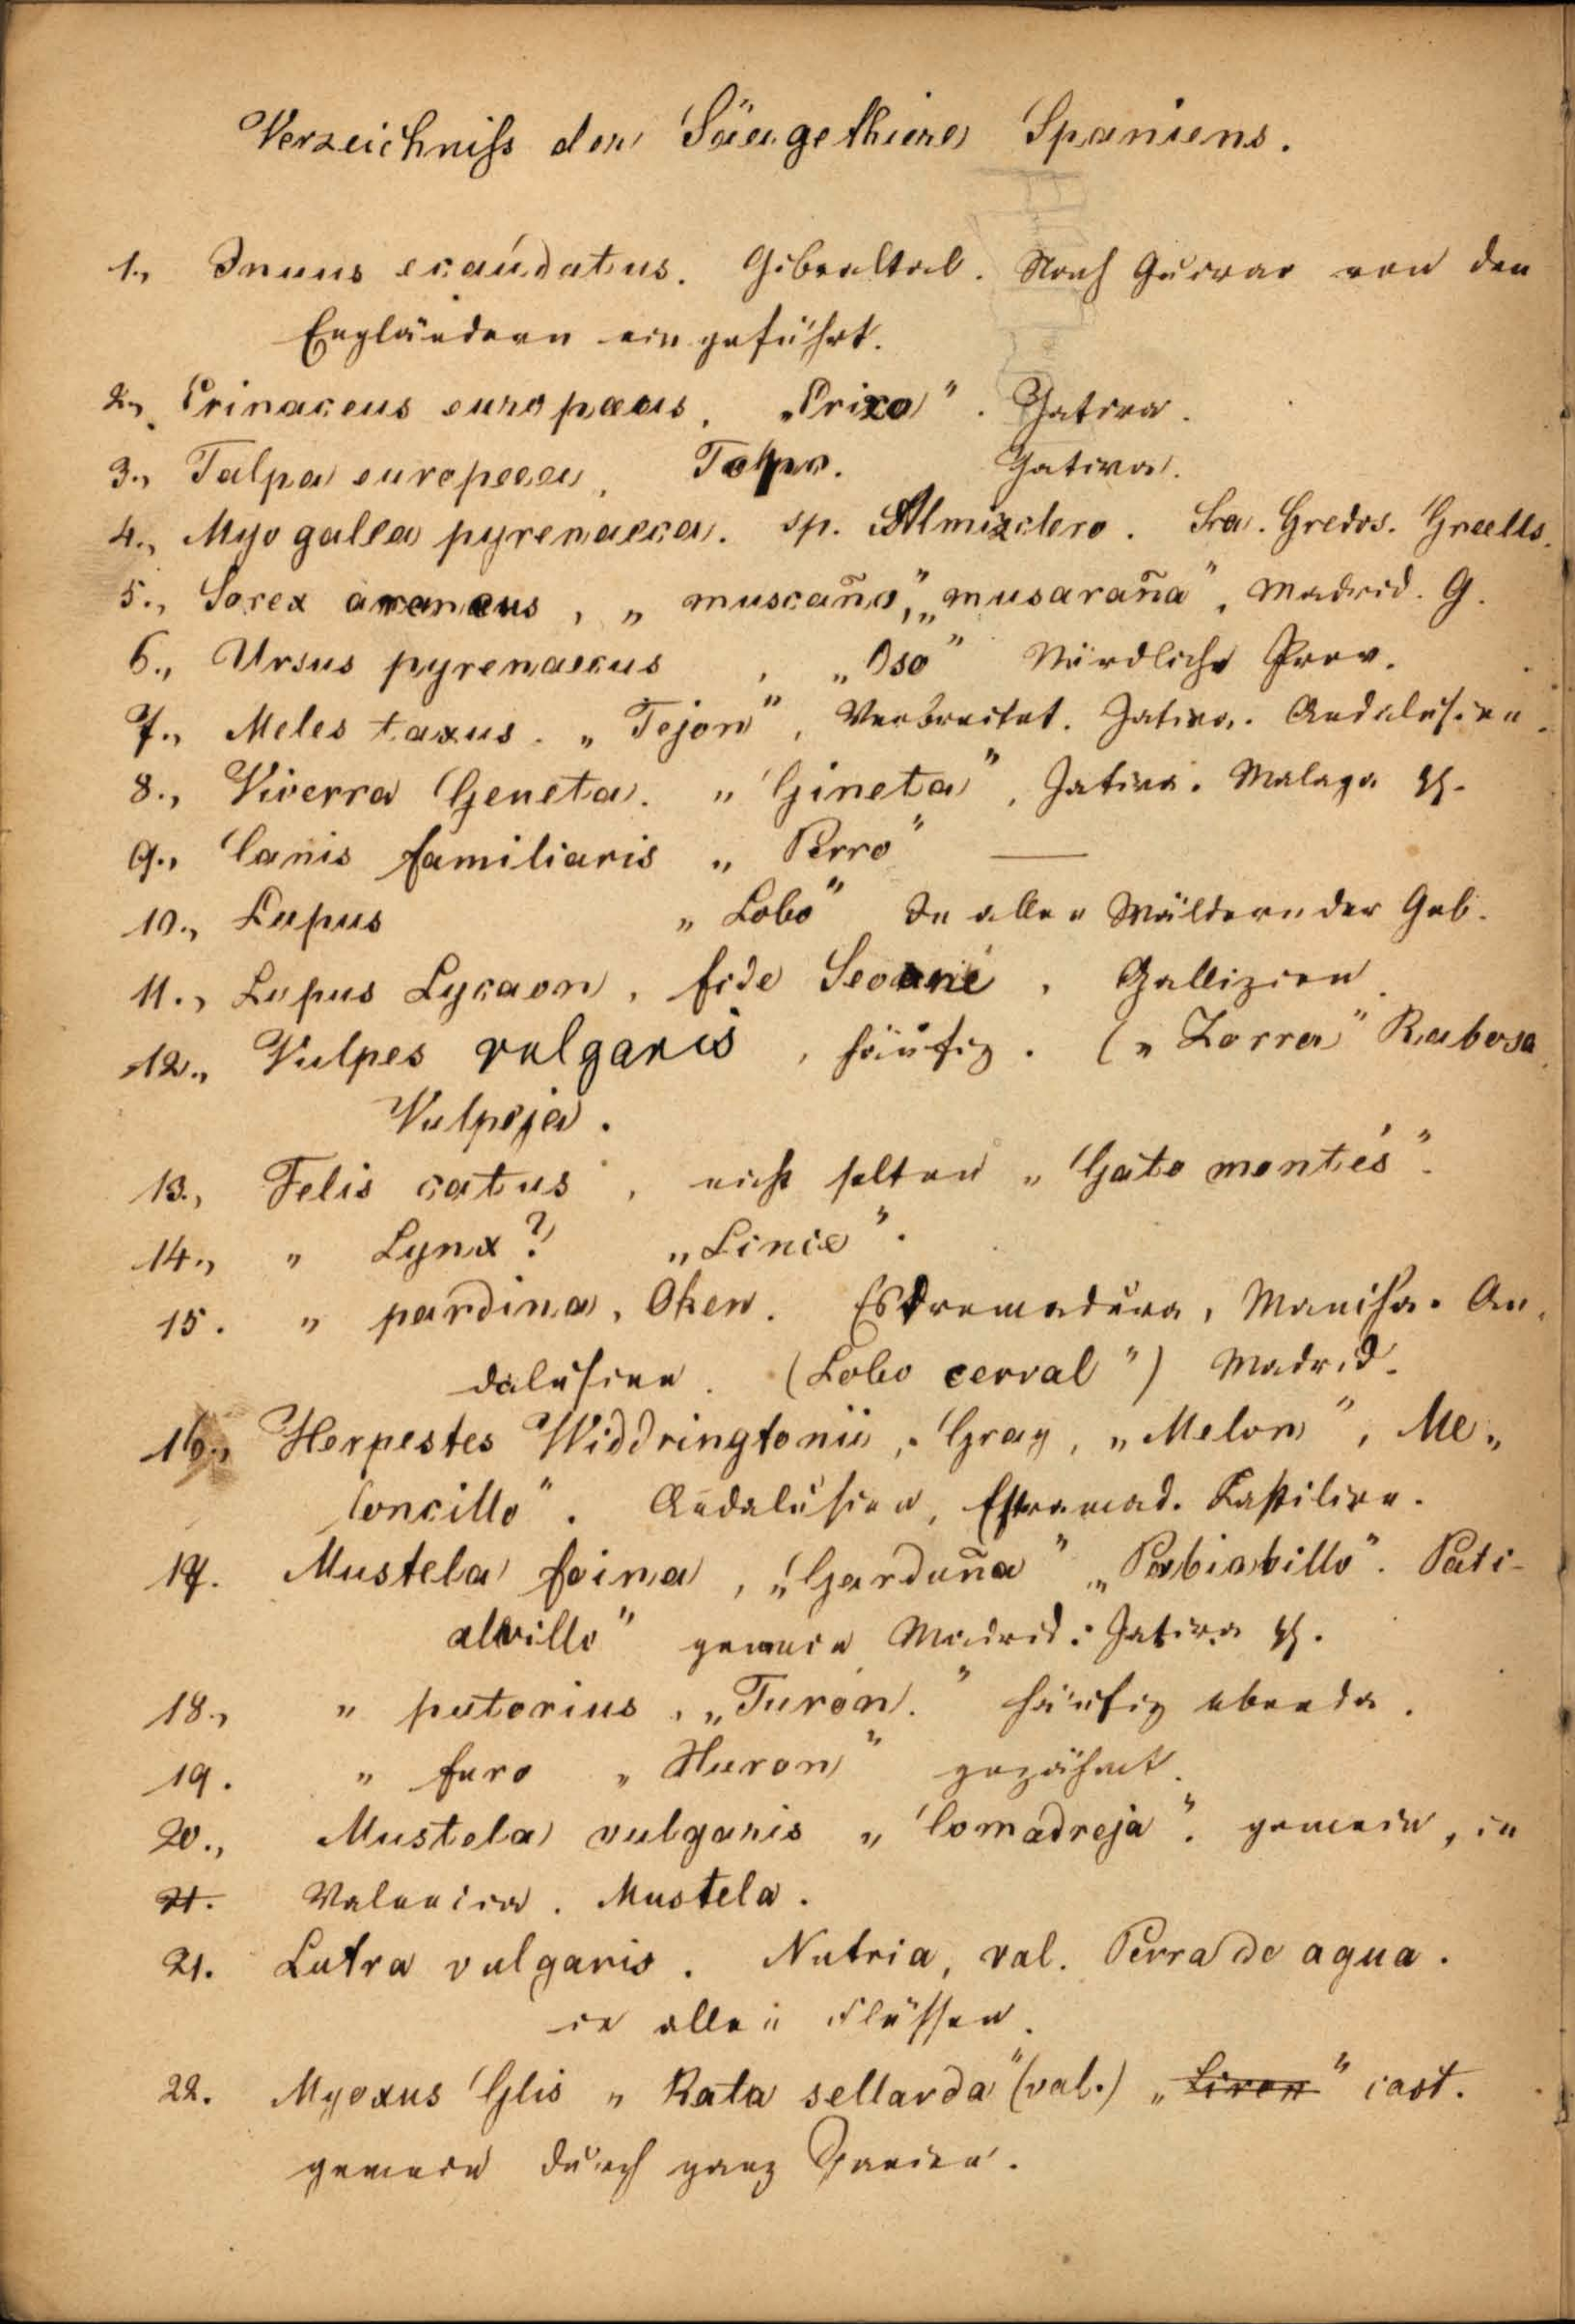 Verzeichniss der Säugethiere Spaniens.
1., Inuus ecaudatus. Gibraltar. Nach von den
Engländern eingeführt.
2., Erinaceus europaeus, „Erixo”. Jativa.
3., Talpa europaea, Jativa.
4., Myogallea pyrenaeca. sp. Almizclero. Sra. Gredos. Graells.
5., Sorex araneus, „muscaño”, „musaraña”, Madrid. G.
6., Ursus pyrenaecus, „Oso” Nördliche Prov.
7., Meles taxus. „Tejon”, Verbreitet. Jativa. Andalusien.
8., Viverra Geneta. „Gineta”, Jativa. Malaga
9., Canis familiaris „Perro” —
10., Lupus „Lobo” In allen Wäldern der Geb.
11., Lupus Lycaon, fide Seoane, Gallizien.
12., Vulpes vulgaris, häufig. („Zorra” Rabosa
Vulpeja.
13., Felis catus, nicht selten „Gato montés”.
14., „ Lynx? „Lince”.
15. „ pardina, Oken. Estremadura, Mancha. An„
dalusien. (Lobo cerval”) Madrid.
16., Herpestes Widdringtonii, Gray, „Melon”, Me„
loncillo”. Andalusien, Estremad. Kastilien.
17. Mustela foina, „Garduña” „Pabiabillo”. Pati-
albillo” gemein Madrid. Jativa
18., „ putorius, „Turón.” häufig ebenda.
19. „ furo „Huron” gezähmt.
20., Mustela vulgaris „Comadreja”. gemein, in
21. Valencia. Mustela.
21. Lutra vulgaris. Nutria, val. Perra de agua.
in allen Flüssen.
22. Myoxus Glis „Rata sellarda” (val.) „Liron” cast.
gemein durch ganz Spanien.